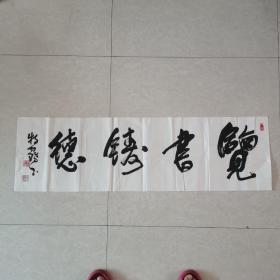 覽書鑄德